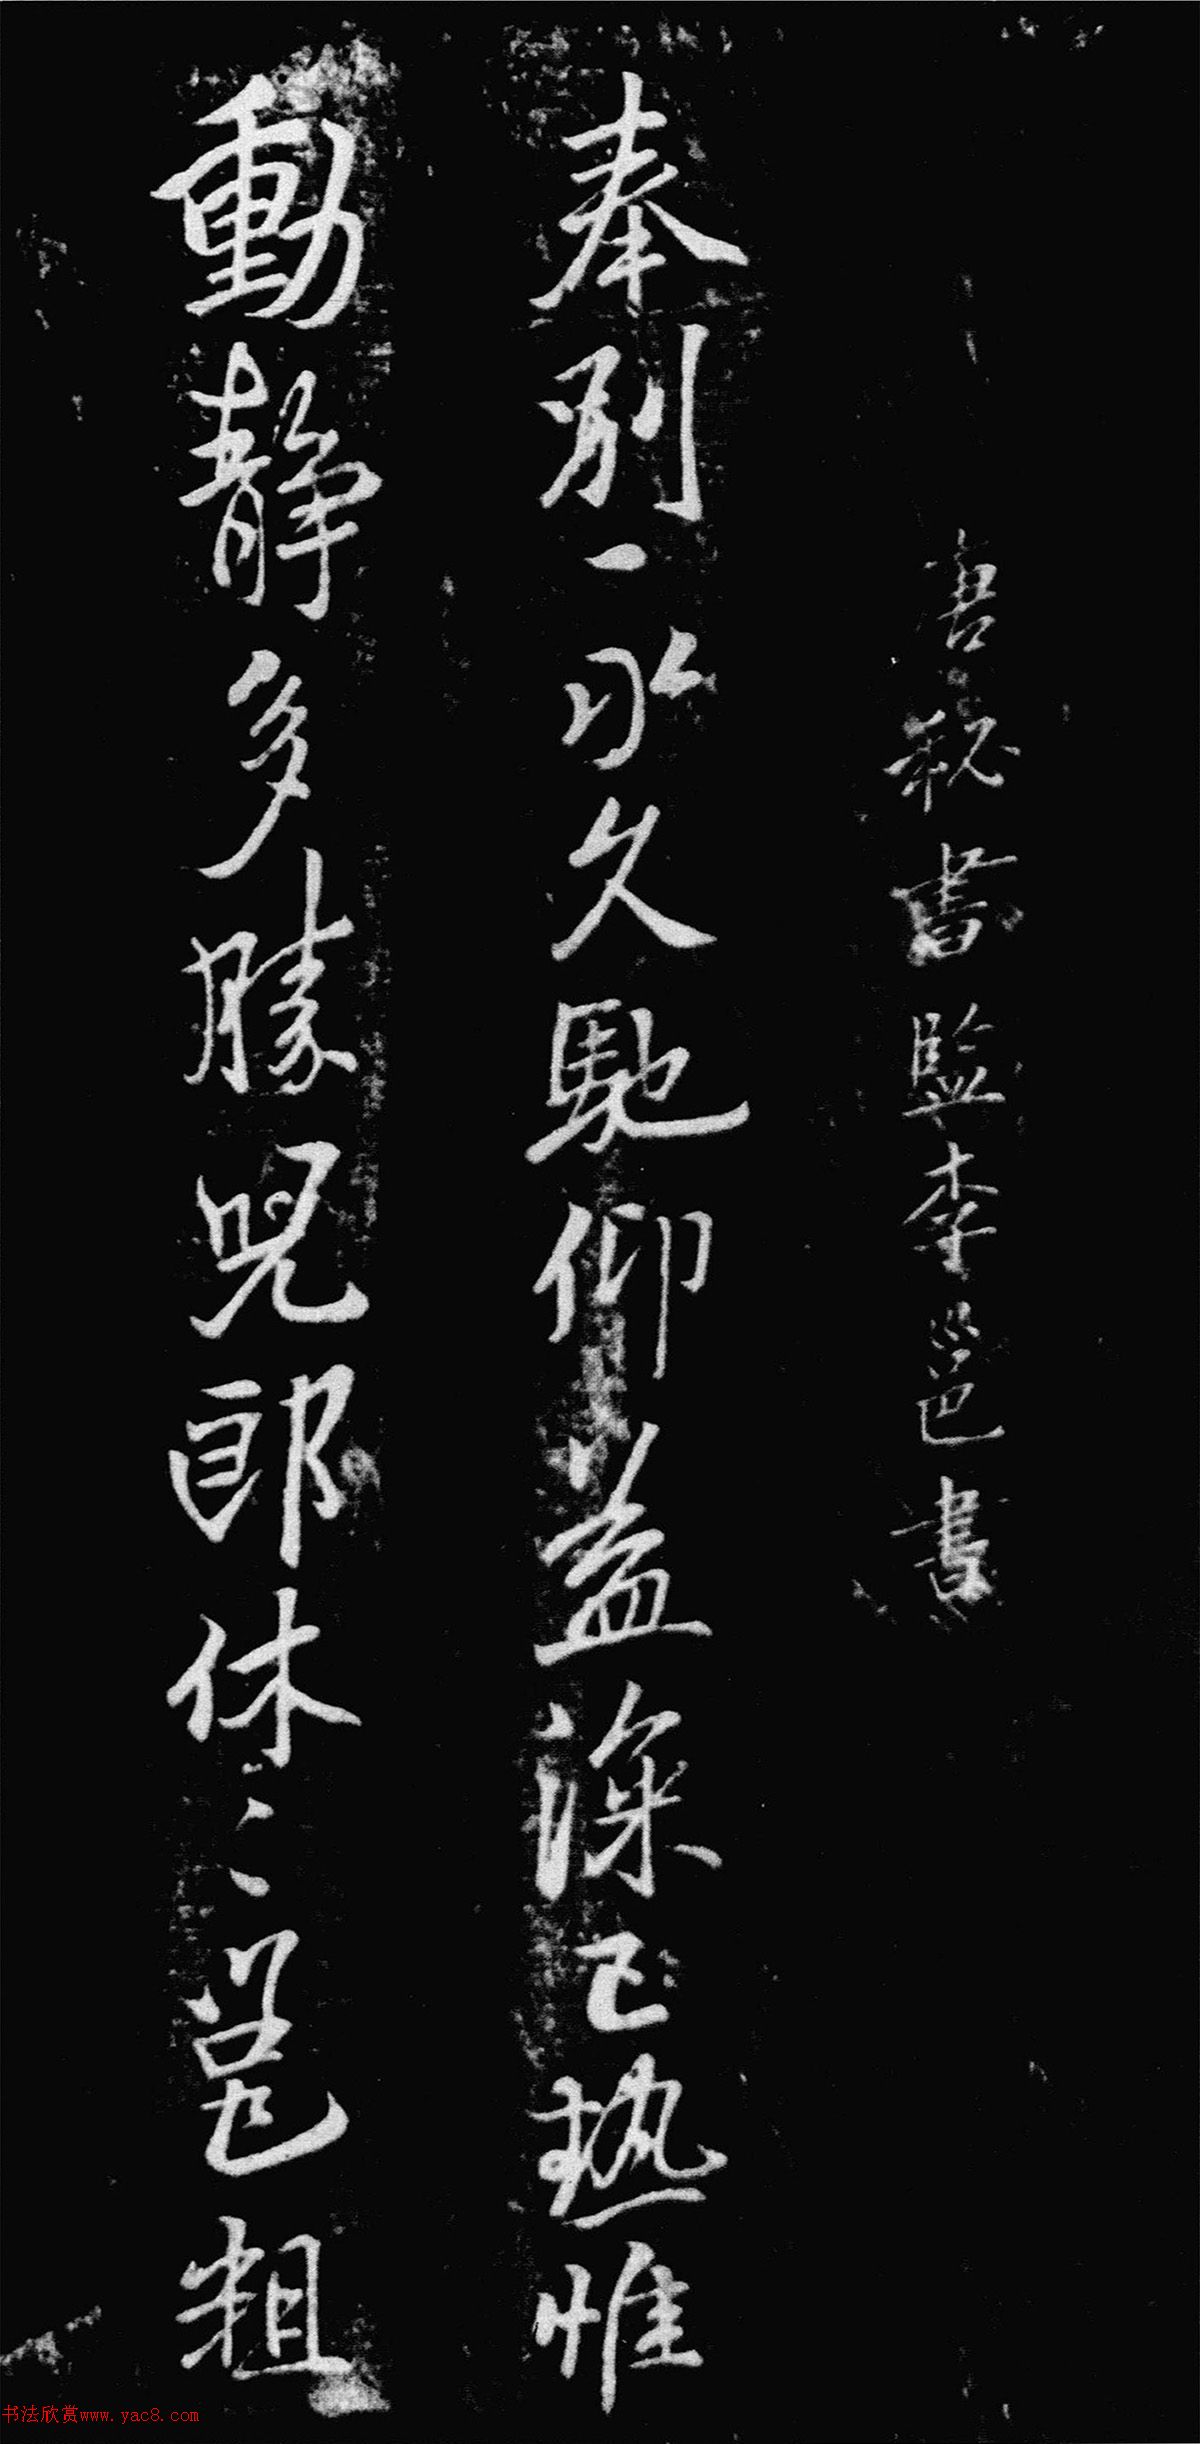 唐秘書監李邕書
奉別一久馳仰益深已熱惟
動静多勝兒郎休〻邕粗
书法欣赏www.yac8.com